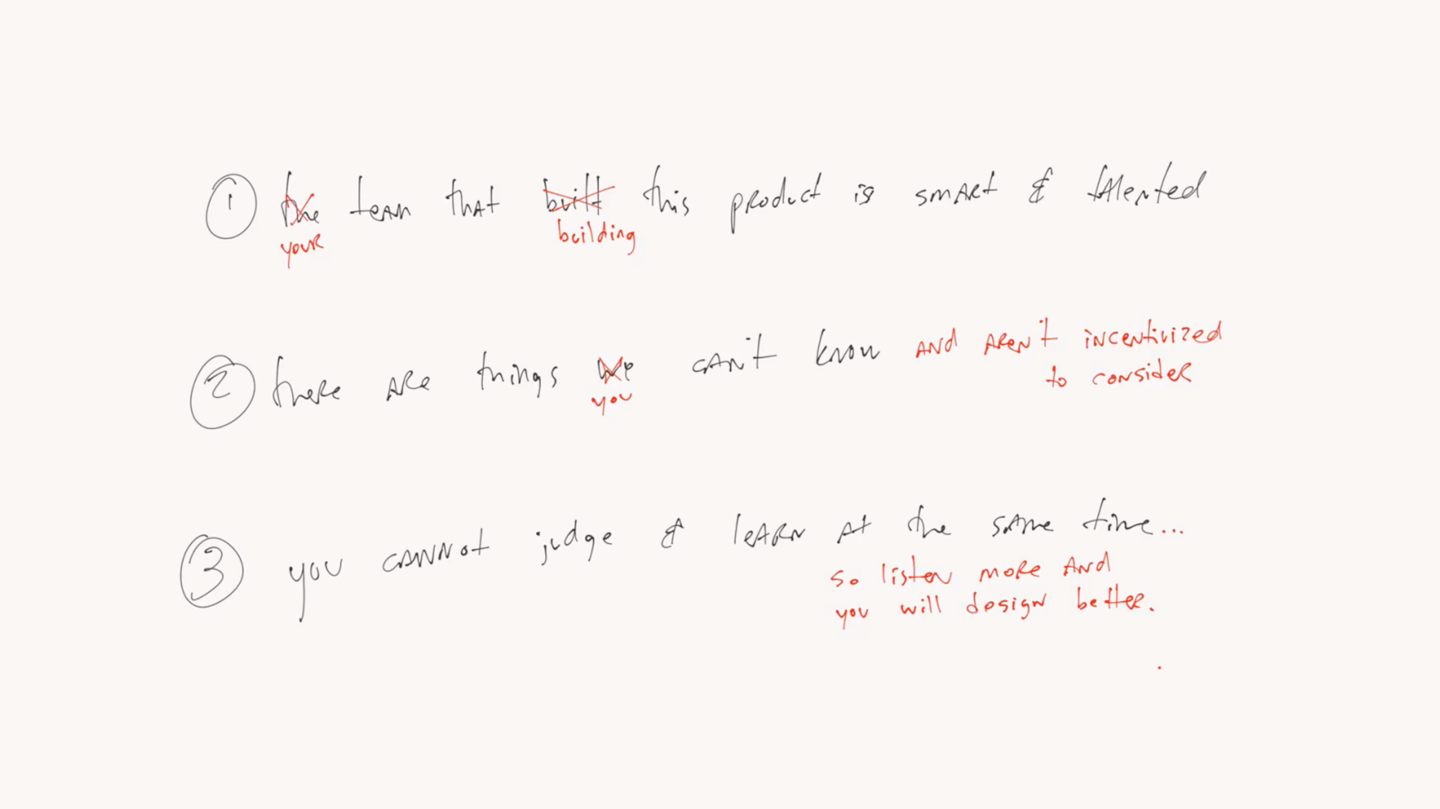 1 the team that built this product is smart & talented
your building
2 there are things we can't know and aren't incentivized
you to consider
3 you cannot judge & learn at the same time...
so listen more and
you will design better.